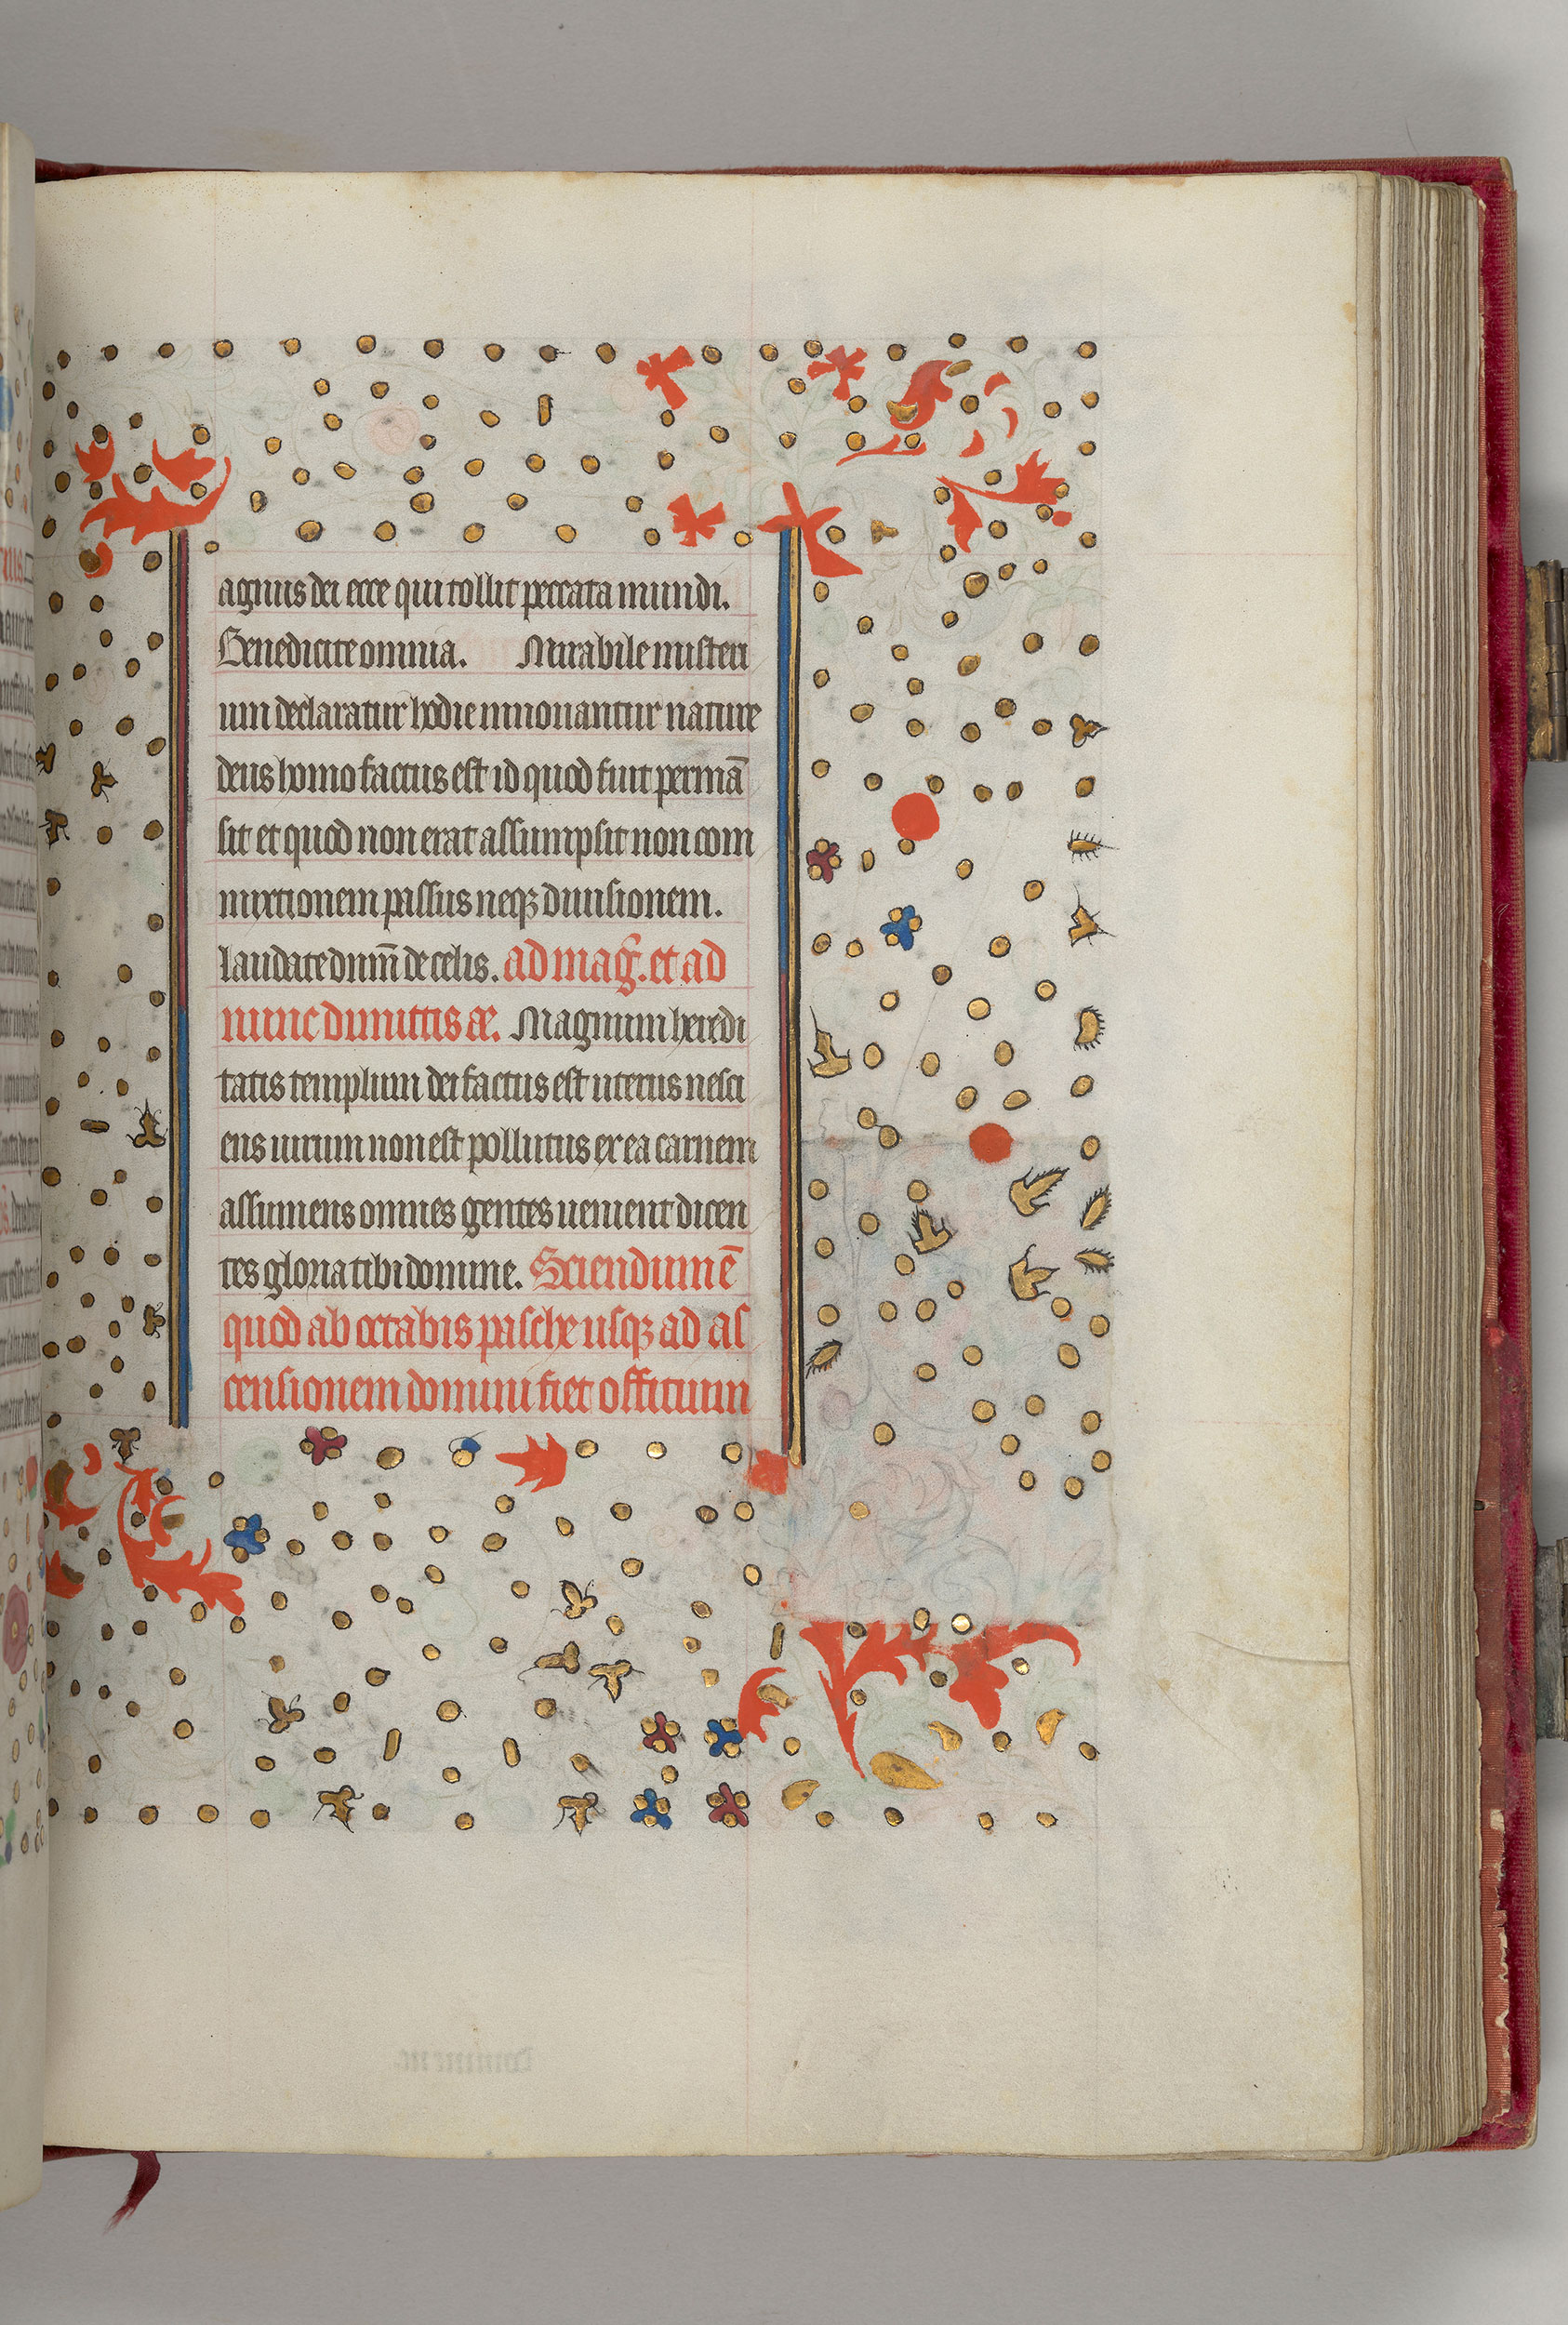 agnus dei ecce qui tollit peccata mundi.
Benedicite omnia. Mirabile misteri
um declaratur hodie innouantur nature
deus homo factus est id quod fuit permā
sit et quod non erat assumpsit non com
mixtionem passus neqꝫ diuisionem.
laudate dnm̄ de celis. ad mag̃. et ad
nunc dimittis æ. Magnum heredi
tatis templum dei factus est uterus nesci
ens uirum non est pollutus ex ea carnem
assumens omnes gentes uenient dicen
tes gloria tibi domine. Sciendum ē
quod ab octabis pasche usqꝫ ad as
censionem domini fiet offitium